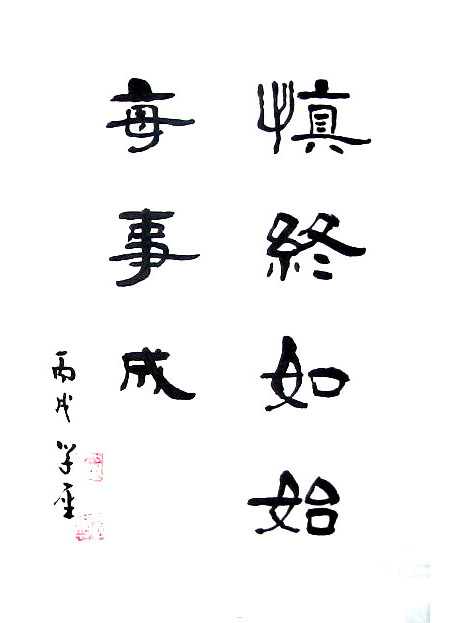 慎終如始
每事成
丙戌 学